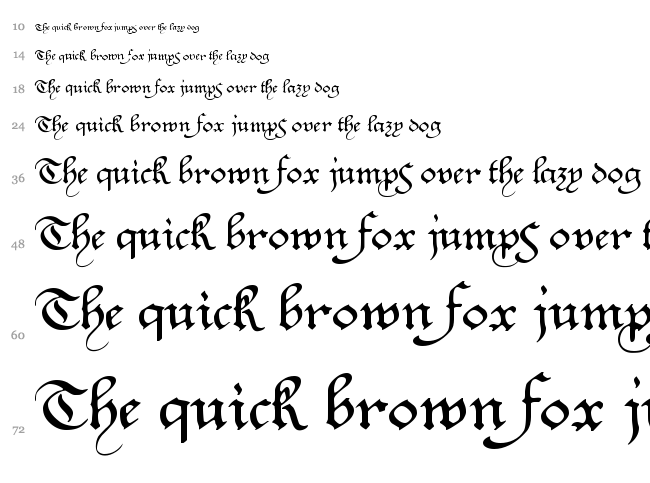 10 The quick brown fox jumps over the lazy dog
14 The quick brown fox jumps over the lazy dog
18 The quick brown fox jumps over the lazy dog
24 The quick brown fox jumps over the lazy dog
36 The quick brown fox jumps over the lazy dog
48 The quick brown fox jumps over t
60 The quick brown fox jump
72 The quick brown fox ju